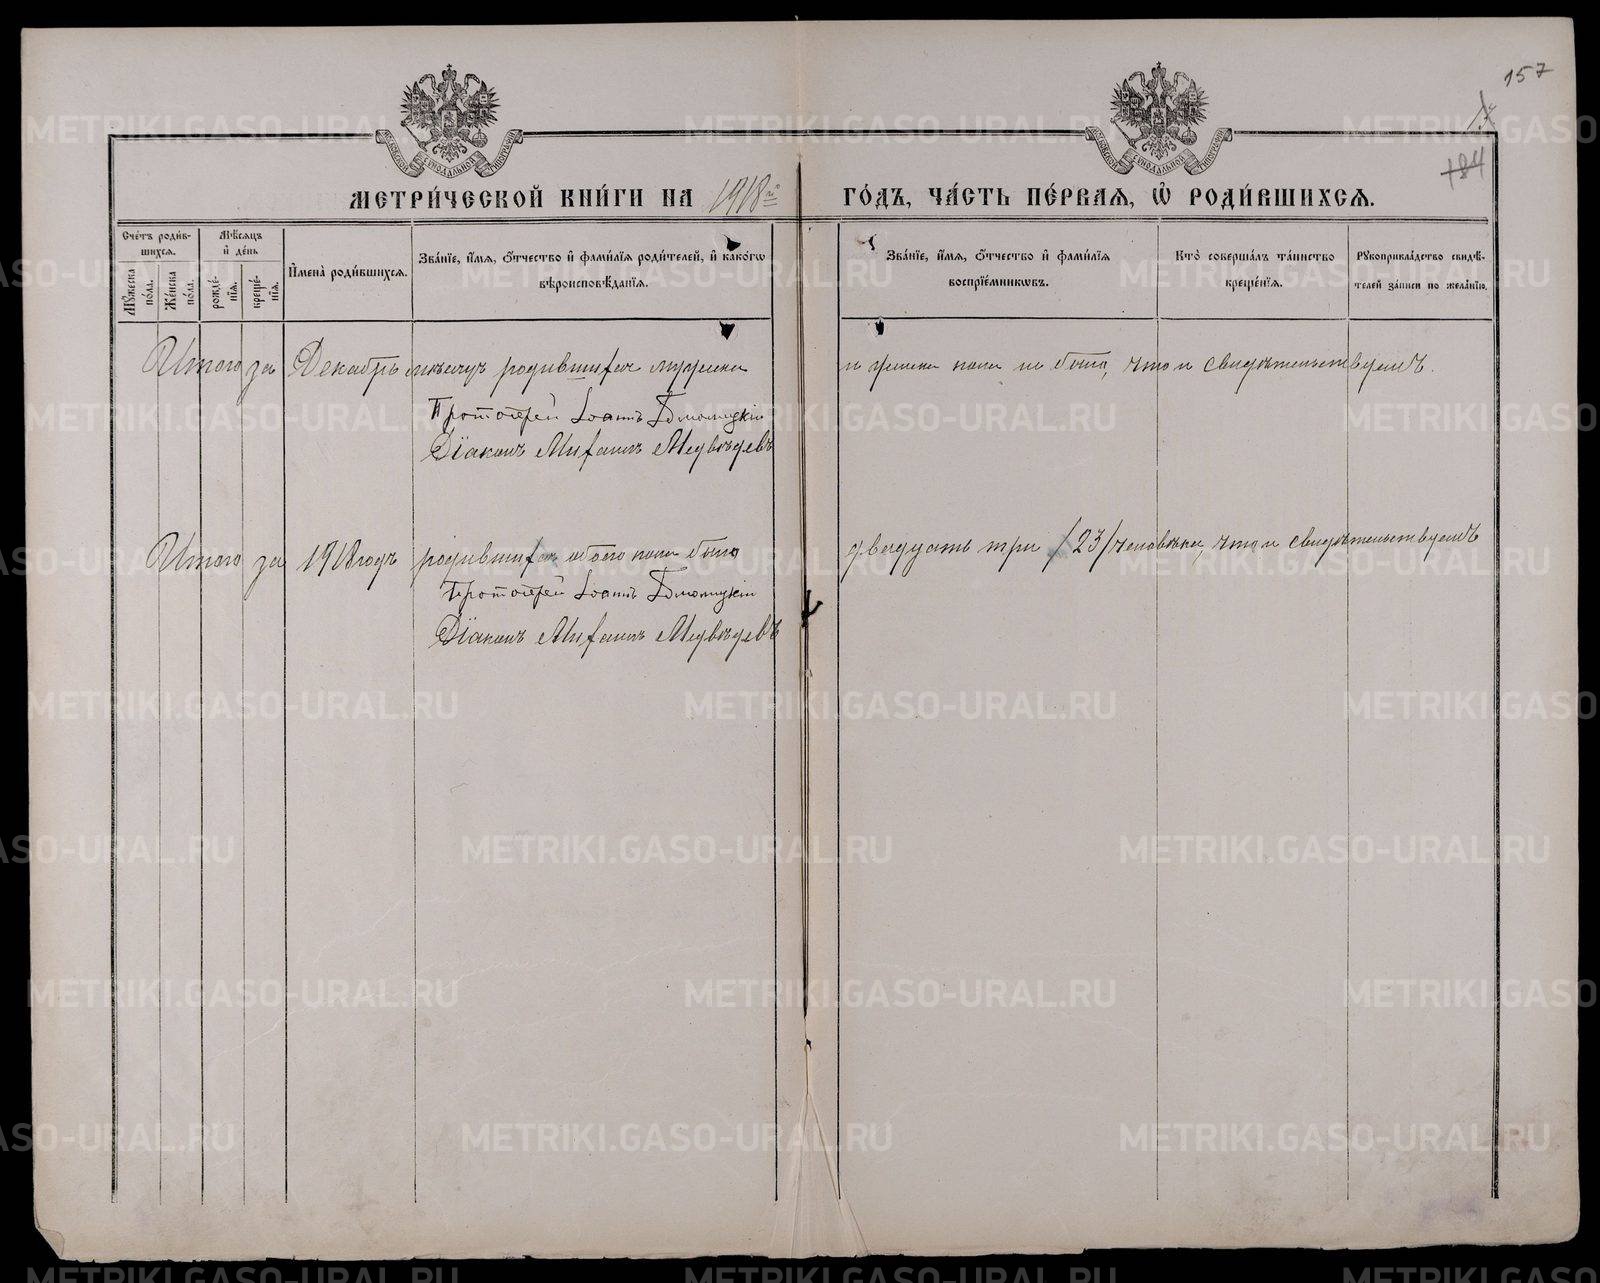 157
184
МОСКОВСКОЙ СѴНОДАЛЬНОЙ ТИПОГРАФІИ
МОСКОВСКОЙ СѴНОДАЛЬНОЙ ТИПОГРАФІИ
МЕТРИ́ЧЕСКОЙ КНИ́ГИ НА 1918й ГО́ДЪ, ЧА́СТЬ ПЕ́РВАЯ, Ѽ РОДИ́ВШИХСЯ.
Сче́тъ роди́вшихся.
Му́жеска по́ла.
Же́нска по́ла.
Мѣ́сяцъ и҆ де́нь
рожде́нїя.
креще́нїя.
И҆мена̀ роди́вшихся.
Зва́нїе, и҆́мя, ѻ҆́тчество и҆ фами́лїя роди́телей, и҆ како́гѡ вѣроисповѣ́данїя.
Зва́нїе, и҆́мя, ѻ҆́тчество и҆ фами́лїя воспрїе́мникѡвъ.
Кто̀ соверша́лъ та́инство креще́нїя.
Рꙋкоприкла́дство свидѣ́телей за́писи по жела́нїю.
Итого за Декабрь мѣсяцъ родившихся мужска и женска пола не было, что и свидѣтельствуемъ.
Протоіерей Іоаннъ
Діаконъ Михаилъ Медвѣдевъ
Итого за 1918 годъ родившихся обоего пола было двадцать три /23/ человѣка, что и свидѣтельствуемъ
Протоіерей Іоаннъ
Діаконъ Михаилъ Медвѣдевъ
METRIKI.GASO-URAL.RU